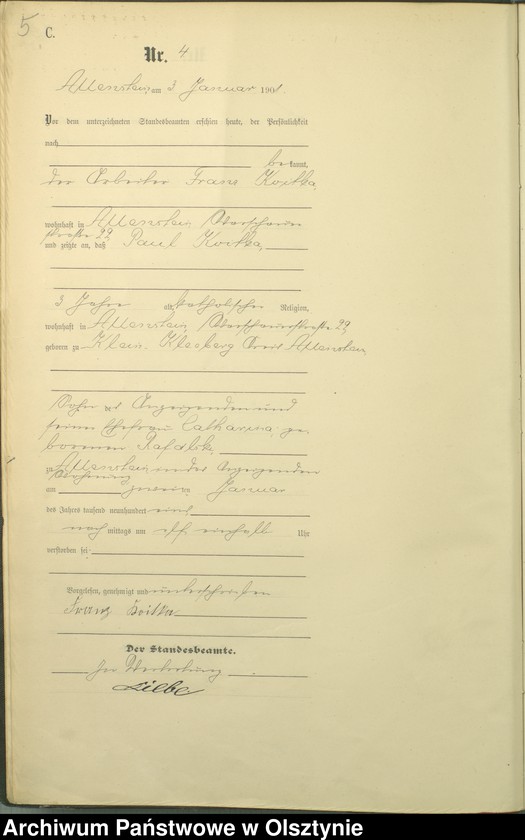 5
C.
Nr. 4
Allenstein am 3 Januar 1901.
Vor dem unterzeichneten Standesbeamten erschien heute, der Persönlichkeit
nach
be kannt,
der Arbeiter Franz Koitka,
wohnhaft in Allenstein,
straße 29
und zeigte an, daß Paul Koitka,
3 Jahre alt, katholischer Religion,
wohnhaft in Allenstein, 29,
geboren zu Klein Kleeberg Kreis Allenstein,
Sohn des Anzeigenden und
seiner Ehefrau Catharina, ge-
borenen Rafalski,
zu Allenstein, in der Anzeigenden
Wohnung
am zweiten Januar
des Jahres tausend neunhundert eins
nach mittags um elf einhalb Uhr
verstorben sei.
Vorgelesen, genehmigt und unterschrieben
Franz Koitka
Der Standesbeamte.
In Vertretung
Liebe
Archiwum Państwowe w Olsztynie